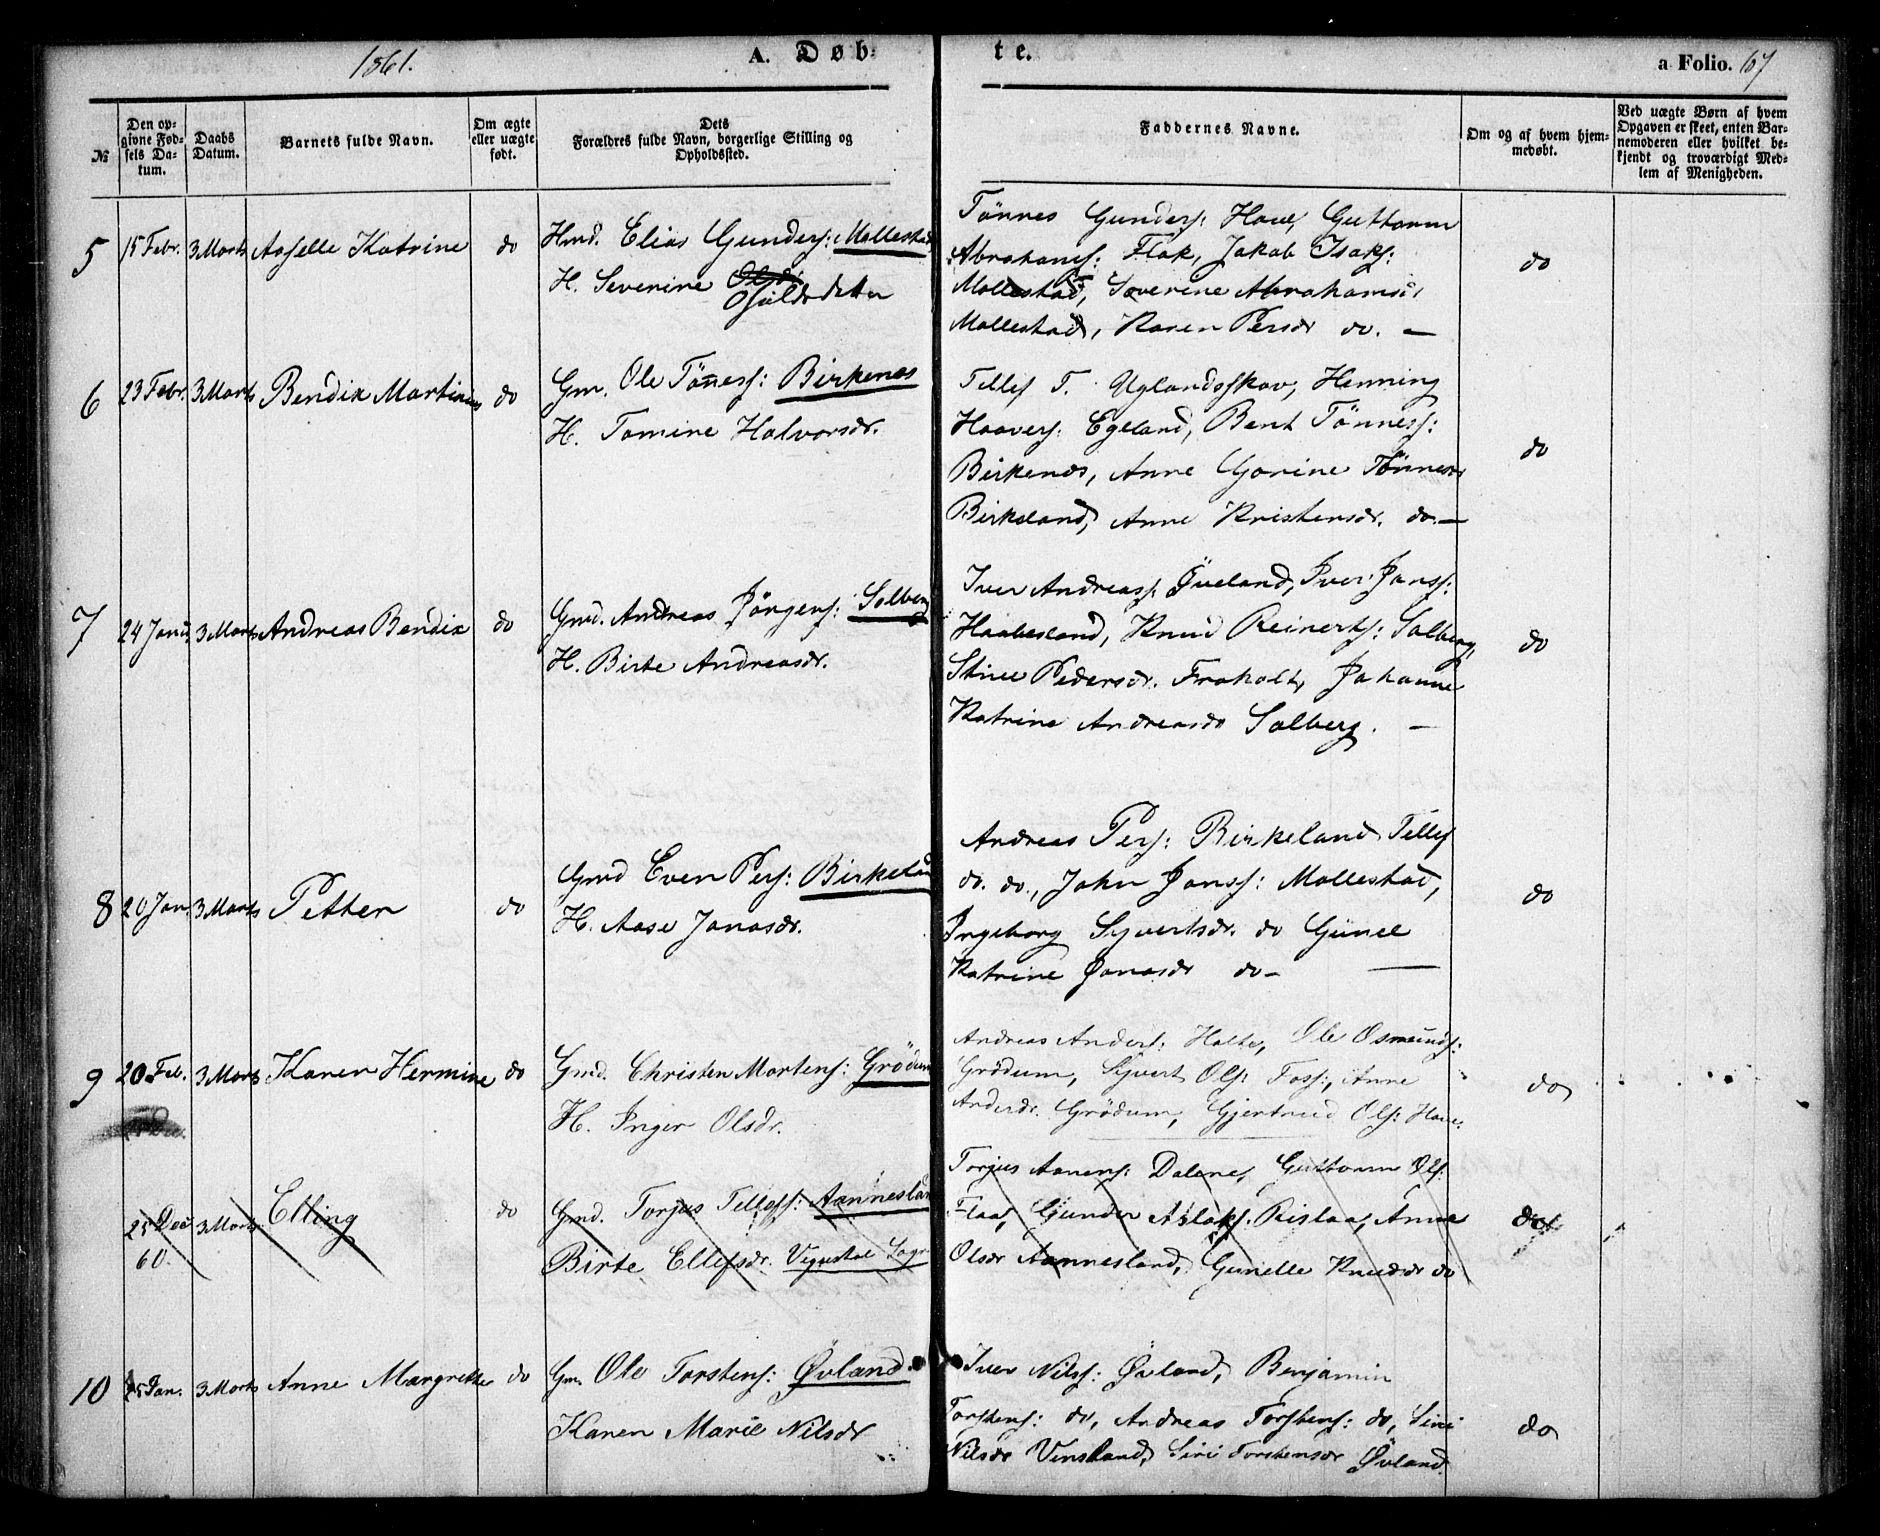 1861.
A. Døb-
te.
a Folio. 67
№
Den op-
givne Fød-
sels Da-
tum.
Daabs
Datum.
Barnets fulde Navn.
Om ægte
eller uægte
født.
Dets
Forældres fulde Navn, borgerlige Stilling og
Opholdssted.
Faddernes Navne.
Om og af hvem hjem-
medøbt.
Ved uægte Børn af hvem
Opgaven er skeet, enten Bar-
nemoderen eller hvilket be-
kjendt og troværdigt Med-
lem af Menigheden.
5 15 Febr. 3 Marts Aaselle Katrine do
Hmd. Elias Gunders: Mollestad
H. Severine Osuldsdatter
Tønnes Gunders: Haue, Guttorm
Abrahams: Flak, Jakob Isaks:
Mollestad, Severine Abrahamsdr
Mollestad, Karen Persdr do. —
do
6 23 Febr. 3 Marts Bendix Martinius do
Gm. Ole Tønness: Birkenes
H. Tomine Halvorsdr.
Tellef T. Uglandsskov, Henning
Haavers: Egeland, Bent Tønness:
Birkenes, Anne Gorine Tønnesdr
Birkeland, Anne Kristensdr. do. —
do
7 24 Janu. 3 Marts Andreas Bendix do
Gmd. Andreas Jørgens: Solberg
H. Birte Andreasdr.
Iver Andreass: Øveland, Iver Jonss:
Haabesland, Knud Reinerts: Solberg,
Stine Pedersdr. Froholt, Johanne
Katrine Andreasdr Solberg. —
do
8 20 Jan. 3 Marts Petter do
Gmd Even Pers: Birkeland
H. Aase Jonasdr.
Andreas Pers: Birkeland, Tellef
do. do., John Jonss: Mollestad,
Ingeborg Syvertsdr. do Gunel
Katrine Jonasdr do — —
do
9 20 Feb. 3 Marts Karen Hermine do
Gmd. Christen Mortens: Grødum
H. Inger Olsdr.
Andreas Anders: Holte, Ole Osmunds:
Grødum, Syvert Ols: Foss:, Anne
Andersdr. Grødum, Gjertrud Ols: Haue.
do
25 Dec 3 Marts Elling do
60.
Gmd. Torjus Tellefs: Aanneslan
Birte Ellefsdr. Vegusdal Sogn
Torjus Aanens: Dalene, Guttorm Ols:
Flaa, Gunder Aslaks: Rislaa, Anne
Olsdr Aannesland, Gunelle Knudsdr do
do
10 25 Jan. 3 Marts Anne Margrette do
Gm. Ole Torstens: Øvland.
Karen Marie Nilsdr
Iver Nilss: Øvland, Benjamin
Torstens: do, Andreas Torstens: do, Siri
Nilsdr Vensland, Siri Torstensdr Øvland.
do